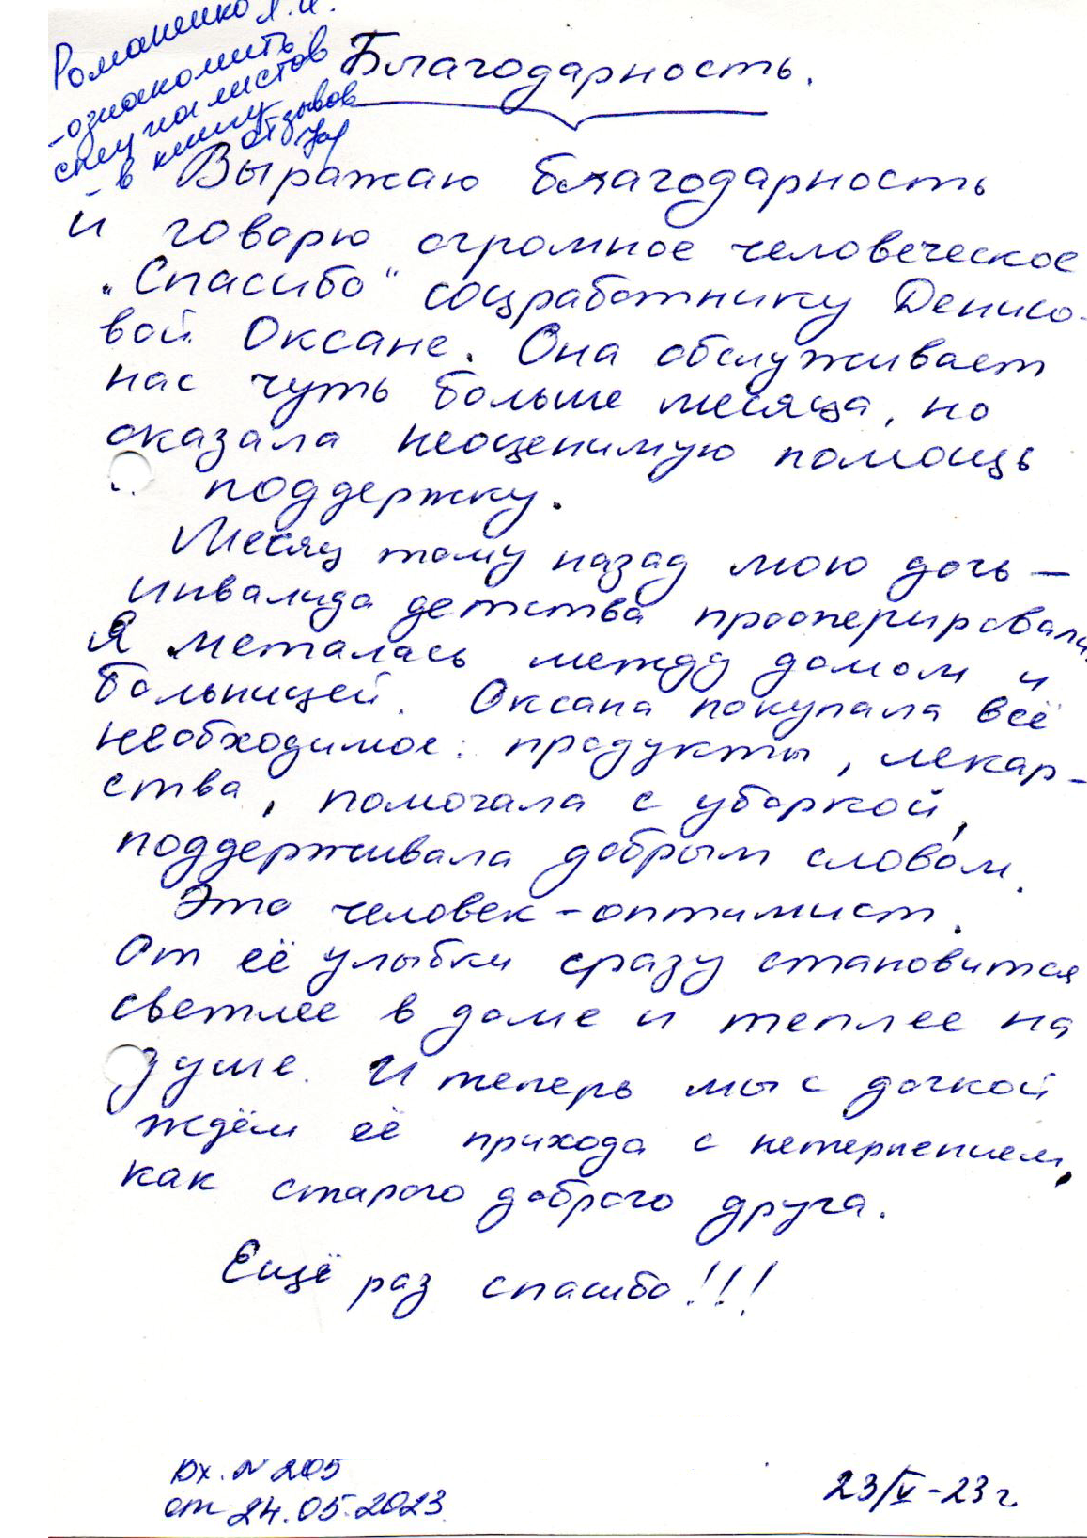 Романенко Л.И.
- ознакомить
специалистов
- в книгу
отзывов
Благодарность.
Выражаю благодарность
и говорю огромное человеческое
"Спасибо" соцработнику Денисо-
вой Оксане. Она обслуживает
нас чуть больше месяца, но
оказала неоценимую помощь
и поддержку.
Месяц тому назад мою дочь -
инвалида детства прооперировали.
Я металась между домом и
больницей. Оксана покупала всё
необходимое: продукты, лекар-
ства, помогала с уборкой,
поддерживала добрым словом.
Это человек-оптимист.
От её улыбки сразу становится
светлее в доме и теплее на
душе. И теперь мы с дочкой
ждём её прихода с нетерпением,
как старого доброго друга.
Ещё раз спасибо!!!
Вх. N 205
от 24.05.2023
23/V-23 г.